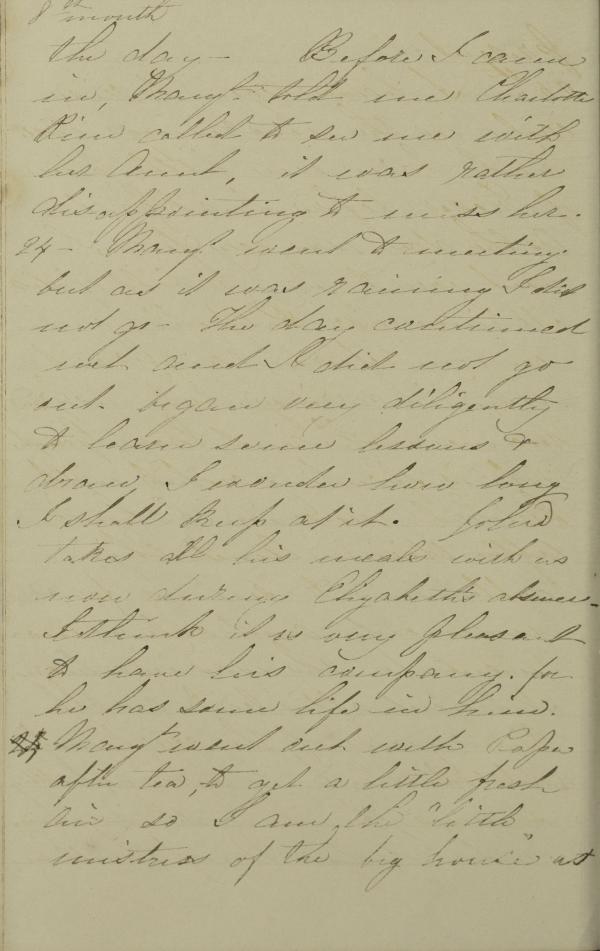 8th month
the day - Before I came
in, Mangt told me Charlotte
called to see me with
her Aunt, it was rather
disappointing to miss her.
24 - Mangt went to meeting
but as it was raining I did
not go - The day continued
wet and I did not go
out. began very diligently
to learn some lessons &
draw, I wonder how long
I shall keep at it. John
takes all his meals with us
now during Elizabeth's absence -
I think it is very pleasant
to have his company. for
he has some life in him.
Mangt went out with Papa
after tea, to get a little fresh
air so I am the "little
mistress of the big house" at